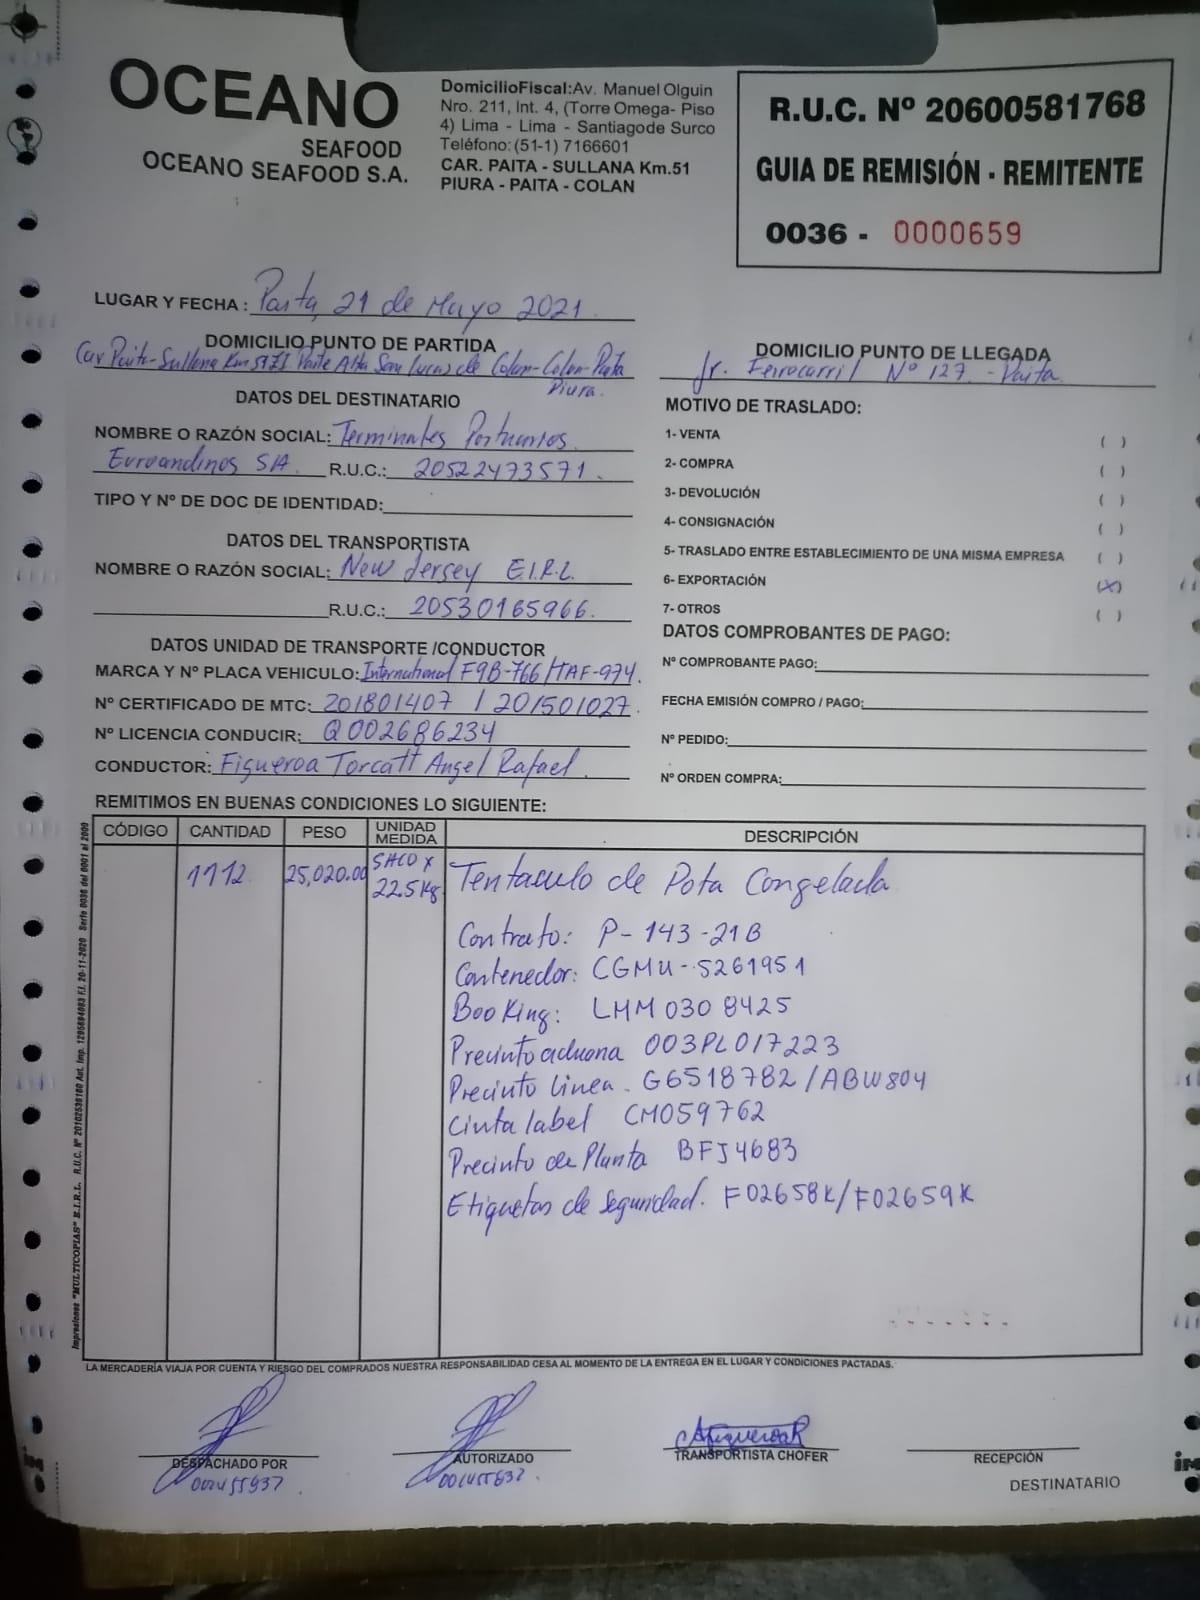 OCEANO
SEAFOOD
OCEANO SEAFOOD S.A.
DomicilioFiscal:Av. Manuel Olguin
Nro. 211, Int. 4, (Torre Omega- Piso
4) Lima - Lima - Santiagode Surco
Teléfono: (51-1) 7166601
CAR. PAITA - SULLANA Km.51
PIURA - PAITA - COLAN
R.U.C. Nº 20600581768
GUIA DE REMISIÓN - REMITENTE
0036 - 0000659
LUGAR Y FECHA : Paita, 21 de Mayo 2021
DOMICILIO PUNTO DE PARTIDA
Car Paita-Sullana Km Parte Alta San Lucas de Colan-Colan-Paita
Piura.
DOMICILIO PUNTO DE LLEGADA
Jr. Ferrocarril Nº 127 - Paita
DATOS DEL DESTINATARIO
NOMBRE O RAZÓN SOCIAL: Terminales Portuarios
Euroandinos S/A. R.U.C.: 20522473571.
TIPO Y Nº DE DOC DE IDENTIDAD:
DATOS DEL TRANSPORTISTA
NOMBRE O RAZÓN SOCIAL: New Jersey E.I.R.L.
R.U.C.: 20530165966.
DATOS UNIDAD DE TRANSPORTE /CONDUCTOR
MARCA Y Nº PLACA VEHICULO: International F9B-766/TAF-974.
Nº CERTIFICADO DE MTC: 201801407 / 201501027.
Nº LICENCIA CONDUCIR: Q002686234
CONDUCTOR: Figueroa Torcatt Angel Rafael.
MOTIVO DE TRASLADO:
1- VENTA ( )
2- COMPRA ( )
3- DEVOLUCIÓN ( )
4- CONSIGNACIÓN ( )
5- TRASLADO ENTRE ESTABLECIMIENTO DE UNA MISMA EMPRESA ( )
6- EXPORTACIÓN (X)
7- OTROS ( )
DATOS COMPROBANTES DE PAGO:
Nº COMPROBANTE PAGO:
FECHA EMISIÓN COMPRO / PAGO:
Nº PEDIDO:
Nº ORDEN COMPRA:
REMITIMOS EN BUENAS CONDICIONES LO SIGUIENTE:
CÓDIGO CANTIDAD PESO UNIDAD MEDIDA DESCRIPCIÓN
1112 25,020.00 SACO X 22.5 Kg Tentaculo de Pota Congelada
Contrato: P-143-21B
Contenedor: CGMU-5261951
Booking: LMM0308425
Precinto aduana 003PL017223
Precinto Linea. G6518782/ABW804
Cinta label CM059762
Precinto de Planta BFJ4683
Etiquetas de Seguridad. F02658K/F02659K
Impresiones "MULTICOPIAS" E.I.R.L. R.U.C. Nº 20102530160 Aut. Imp. 1295684083 F.I. 20-11-2020 Serie 0036 del 0001 al 2000
LA MERCADERÍA VIAJA POR CUENTA Y RIESGO DEL COMPRADOS NUESTRA RESPONSABILIDAD CESA AL MOMENTO DE LA ENTREGA EN EL LUGAR Y CONDICIONES PACTADAS.
DESPACHADO POR
AUTORIZADO
TRANSPORTISTA CHOFER
RECEPCIÓN
DESTINATARIO